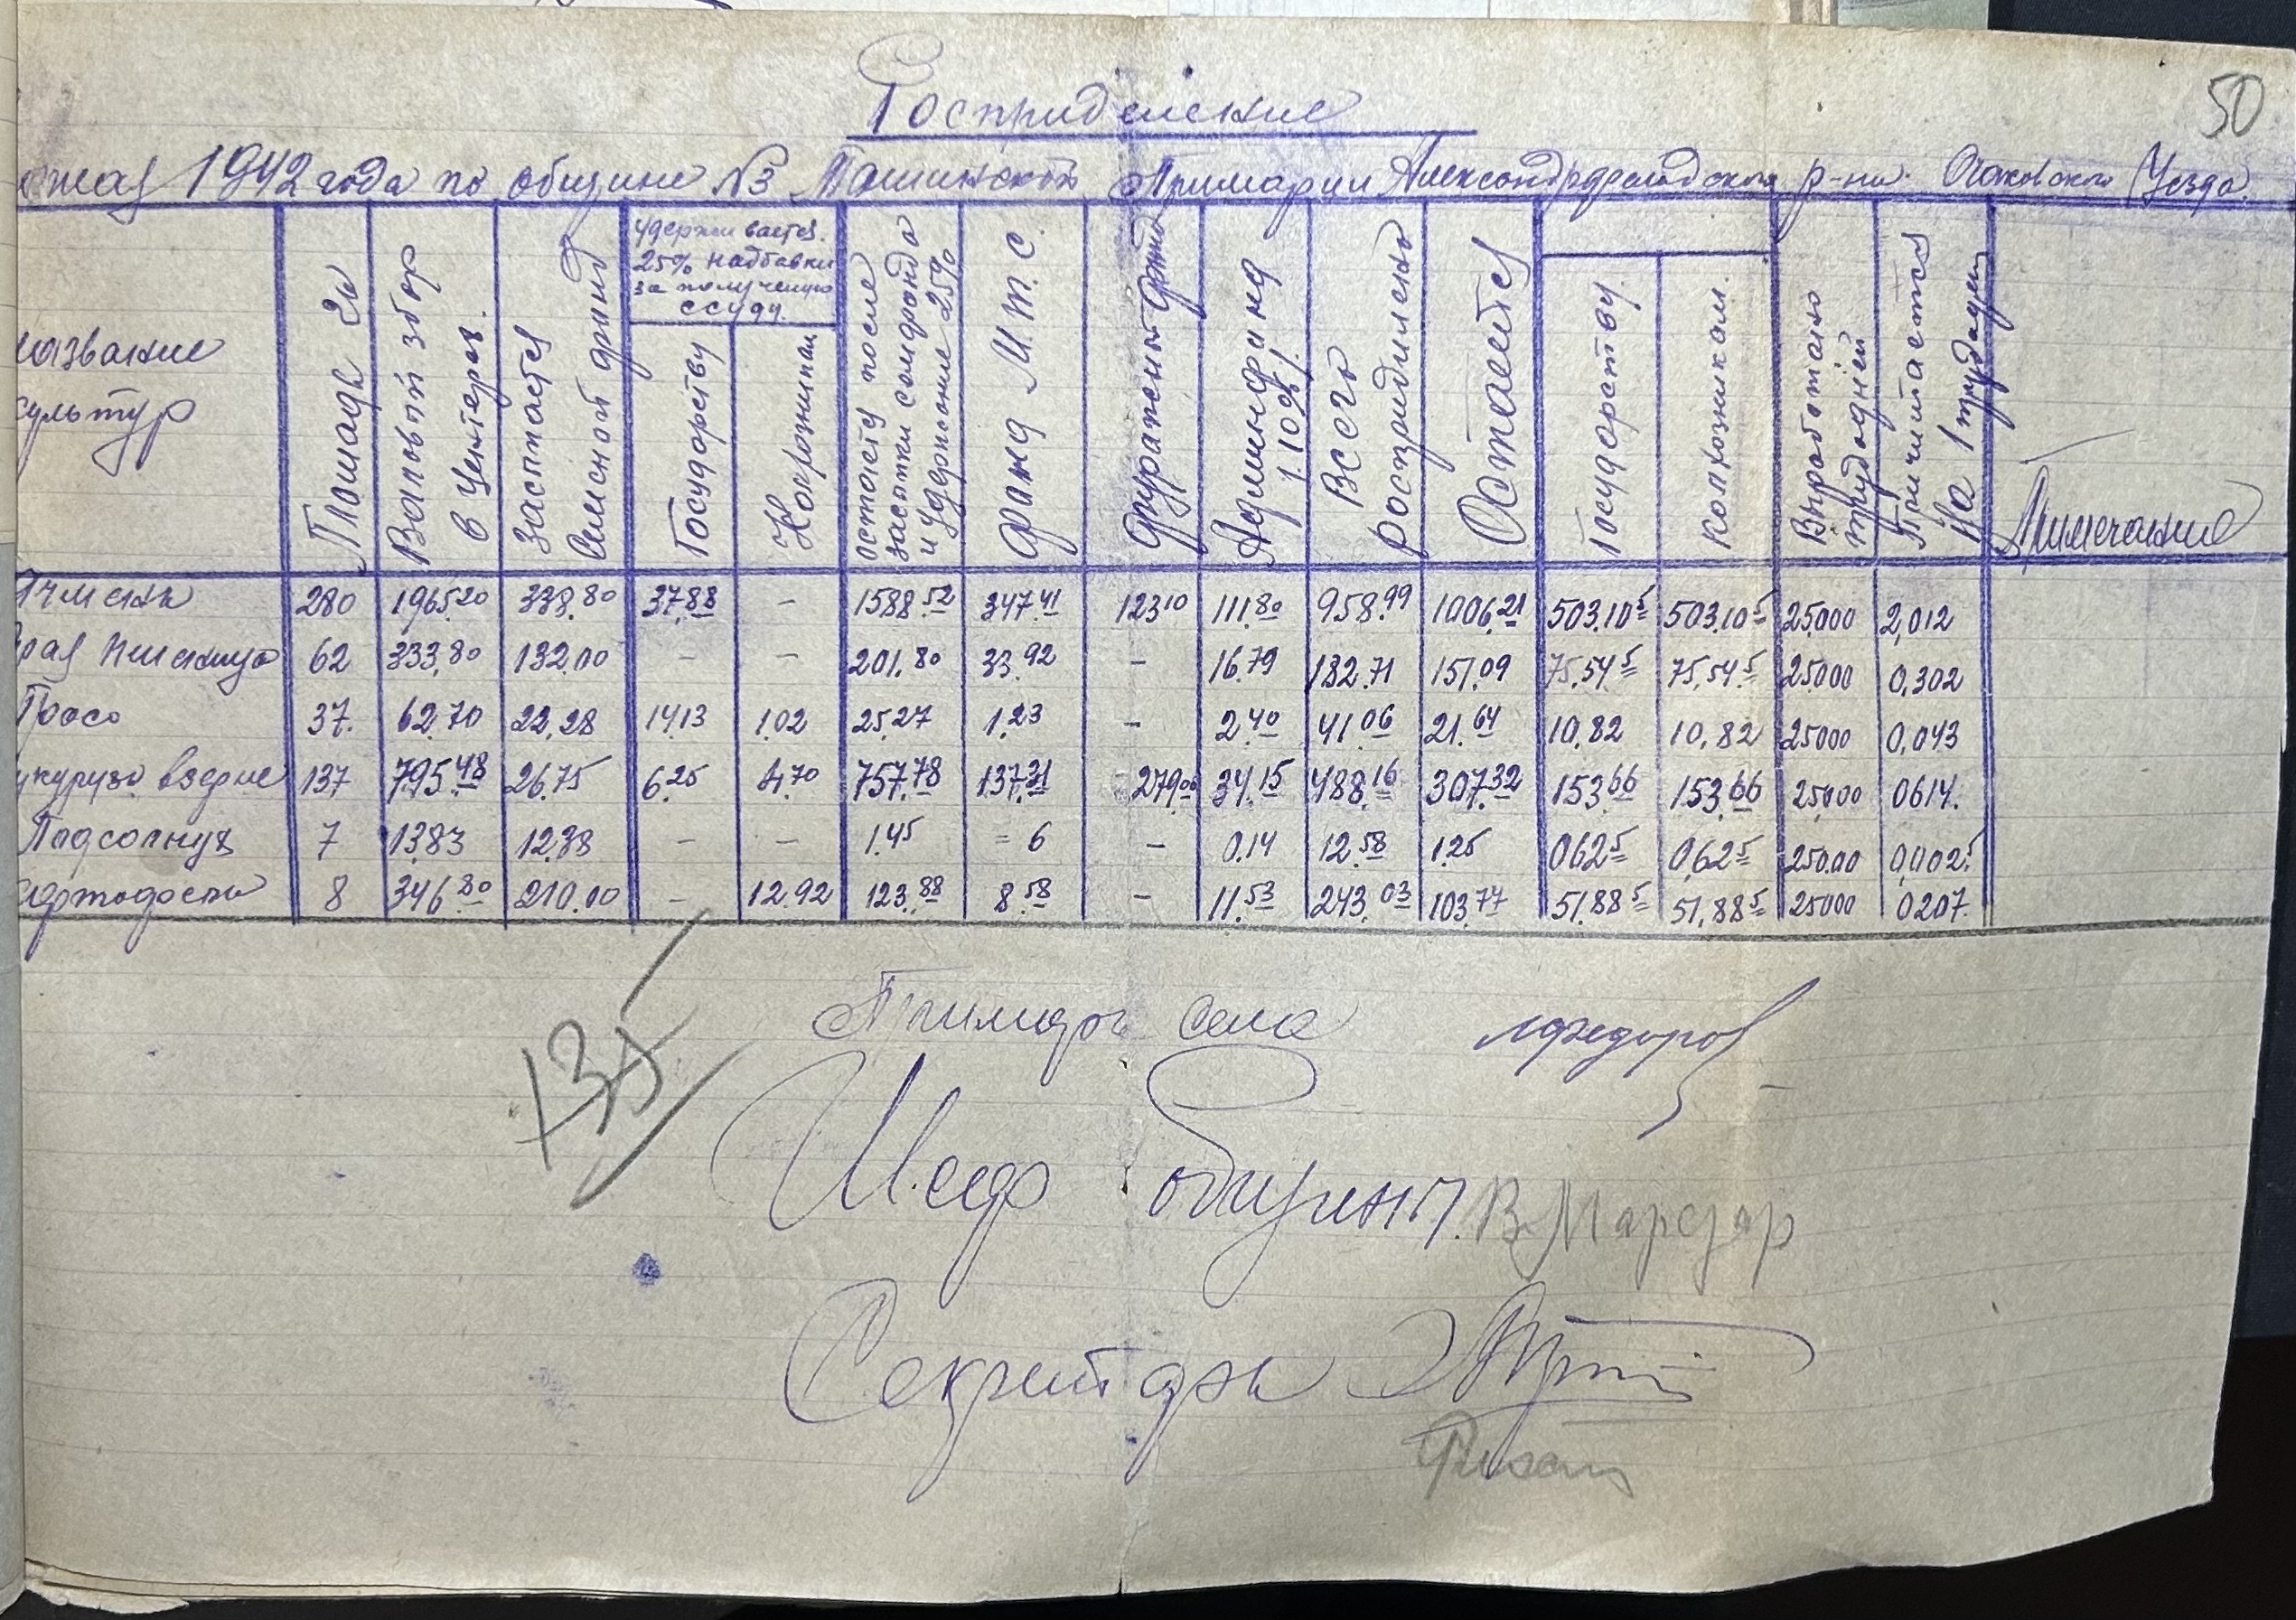 50
Росприделение
ожая 1942 года по общине №3 Ташинской Примарии Александрфельдского р-на. Очаковского Уезда.
название культур | Площадь Га | Валовый збор в Центерах. | Засыпается Семеной фонд | Удерживается 25% надбавки за полученую ссуду. | Государству | Колхозникам | Остается после засыпки семфонда и удержание 25% | Фонд М.Т.С. | Фуражный фонд | Админфонд /10%/ | Всего росприделено | Остается | Государству. | Колхозникам. | Выработано трудодней | Причитается На 1 трудодень | Примечание
Ячмень | 280 | 1965.20 | 338.80 | 37.88 | – | 1588.52 | 347.41 | 123.10 | 111.80 | 958.99 | 1006.21 | 503.10⁵ | 503.10⁵ | 25000 | 2,012
рая Пшеница | 62 | 333.80 | 132.00 | – | – | 201.80 | 33.92 | – | 16.79 | 182.71 | 151.09 | 75.54⁵ | 75.54⁵ | 25000 | 0,302
Просо | 37. | 62.70 | 22.28 | 14.13 | 1.02 | 25.27 | 1.23 | – | 2.40 | 41.06 | 21.64 | 10.82 | 10.82 | 25000 | 0,043
укуруза взерне | 137 | 795.48 | 26.75 | 6.25 | 4.70 | 757.78 | 137.31 | 279.00 | 34.15 | 488.16 | 307.32 | 153.66 | 153.66 | 25000 | 0614.
Падсолнух | 7 | 13.83 | 12.38 | – | – | 1.45 | = 6 | – | 0.14 | 12.58 | 1.25 | 062⁵ | 0,62⁵ | 25000 | 0,002⁵
артофель | 8 | 346.80 | 210.00 | – | 12.92 | 123.88 | 8.58 | – | 11.53 | 243.03 | 103.77 | 51.88⁵ | 51.88⁵ | 25000 | 0207.
Примарь села Федоров
135
Шеф общины. В Марсар
Секретарь